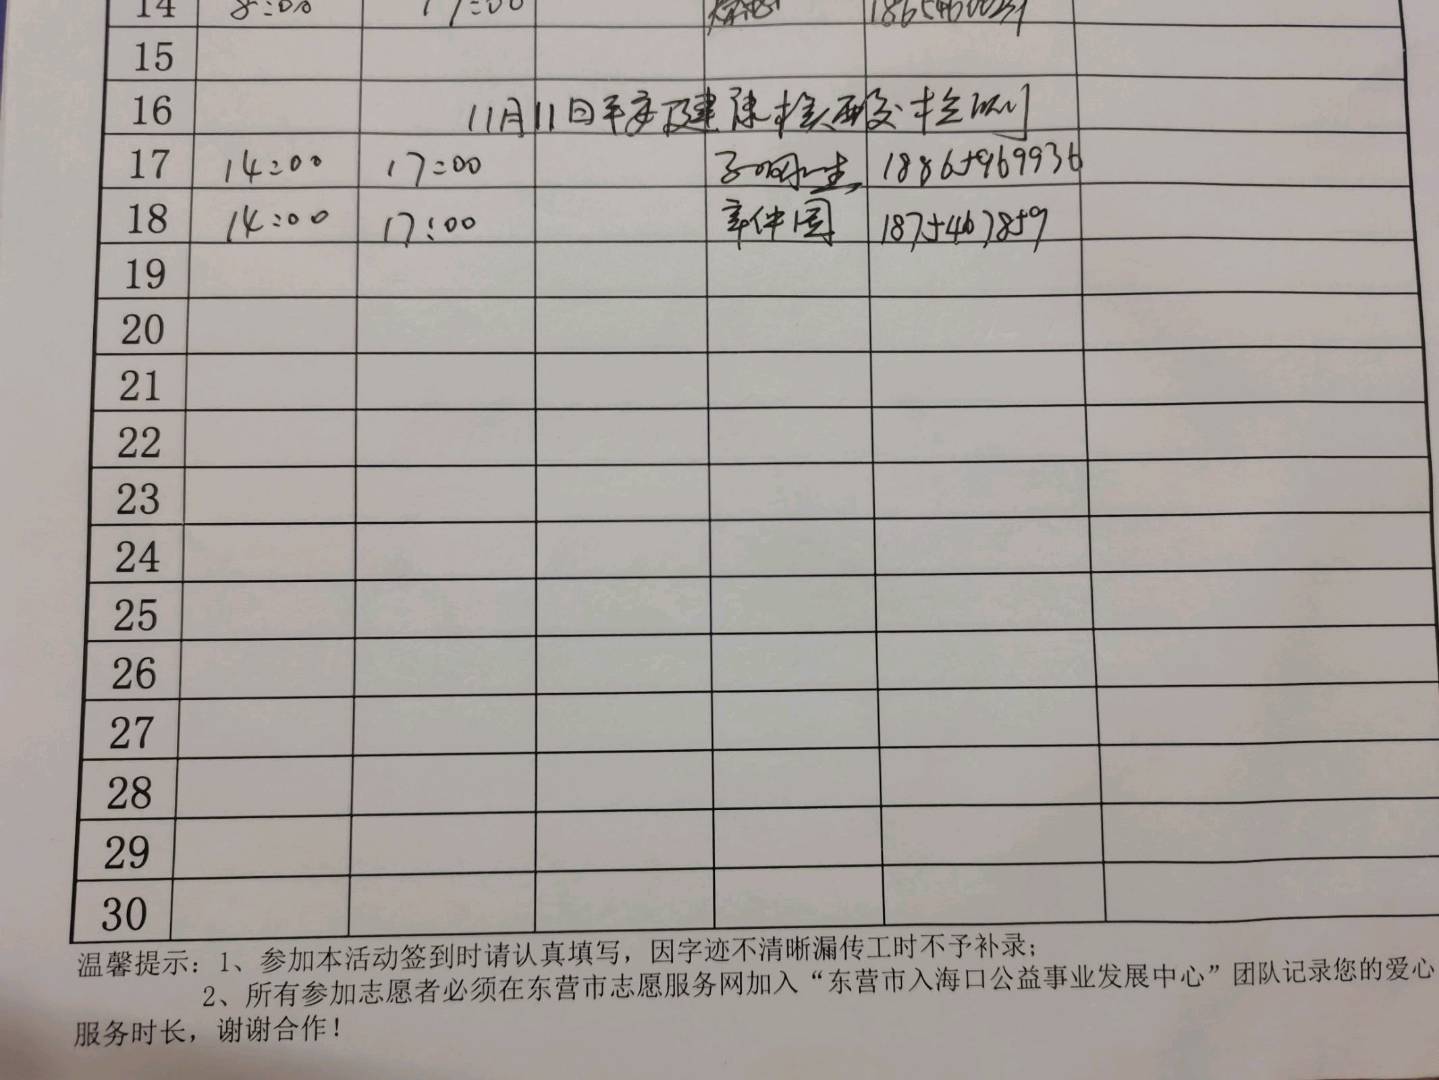 14 8:00 17:00
15
16 11月11日
17 14:00 17:00 18865969936
18 14:00 17:00 辛仲国 1875467859
19
20
21
22
23
24
25
26
27
28
29
30
温馨提示：1、参加本活动签到时请认真填写，因字迹不清晰漏传工时不予补录；
2、所有参加志愿者必须在东营市志愿服务网加入“东营市入海口公益事业发展中心”团队记录您的爱心
服务时长，谢谢合作！